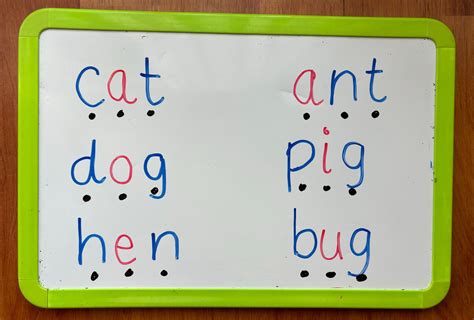 cat ant
dog pig
hen bug